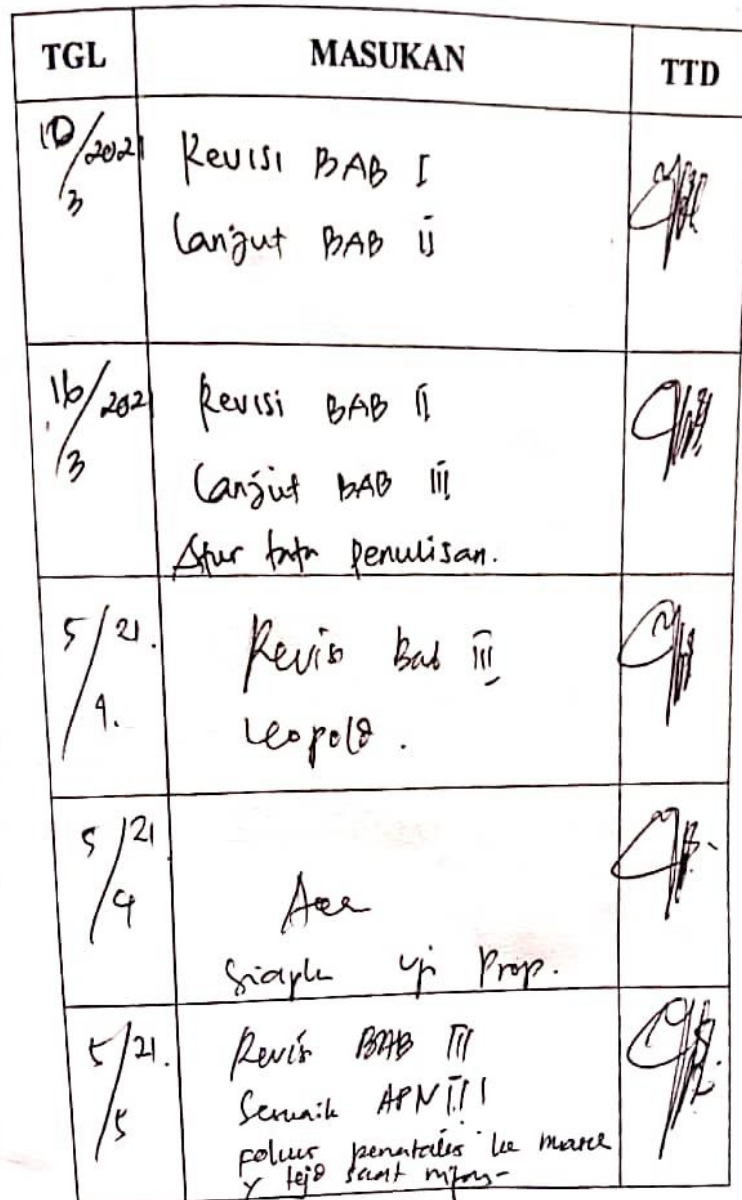 TGL MASUKAN TTD
10/3 2021
Revisi BAB I
Lanjut BAB II
16/3 202
Revisi BAB II
Lanjut BAB III
Atur tata penulisan.
5/4. 21.
Revisi Bab III
Leopold.
5/4 21
Acc
Siapk uji Prop.
5/5 21.
Revisi BAB III
Sesuaik APN !!!
fokus ke
y saat